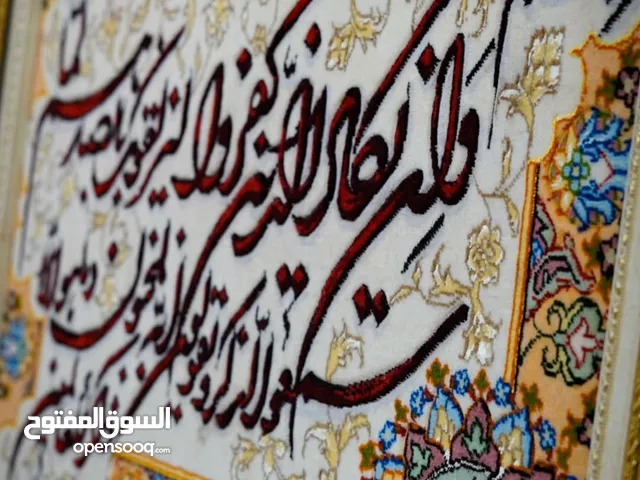 وإن يكاد الذين كفروا ليزلقونك بأبصارهم لما
سمعوا الذكر ويقولون إنه لمجنون وما هو إلا
ذكر للعالمين
السوق المفتوح
opensooq.com